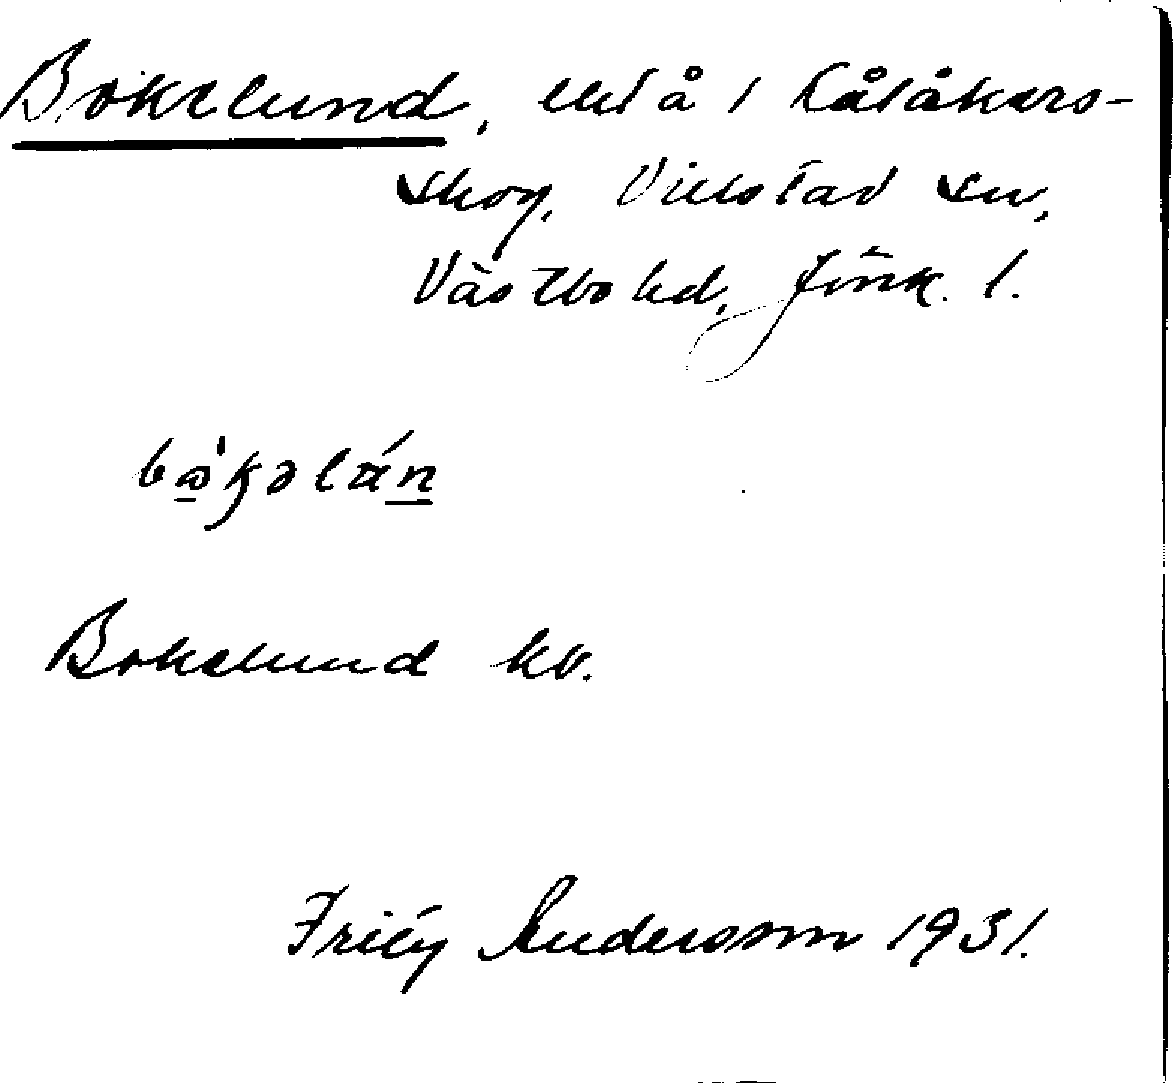 Bökelund, utfå i Kålåkers-
skog, Villstad sn,
Västbo hd, Jönk. l.
Bokelund kv.
Fritz Andersson 1931.